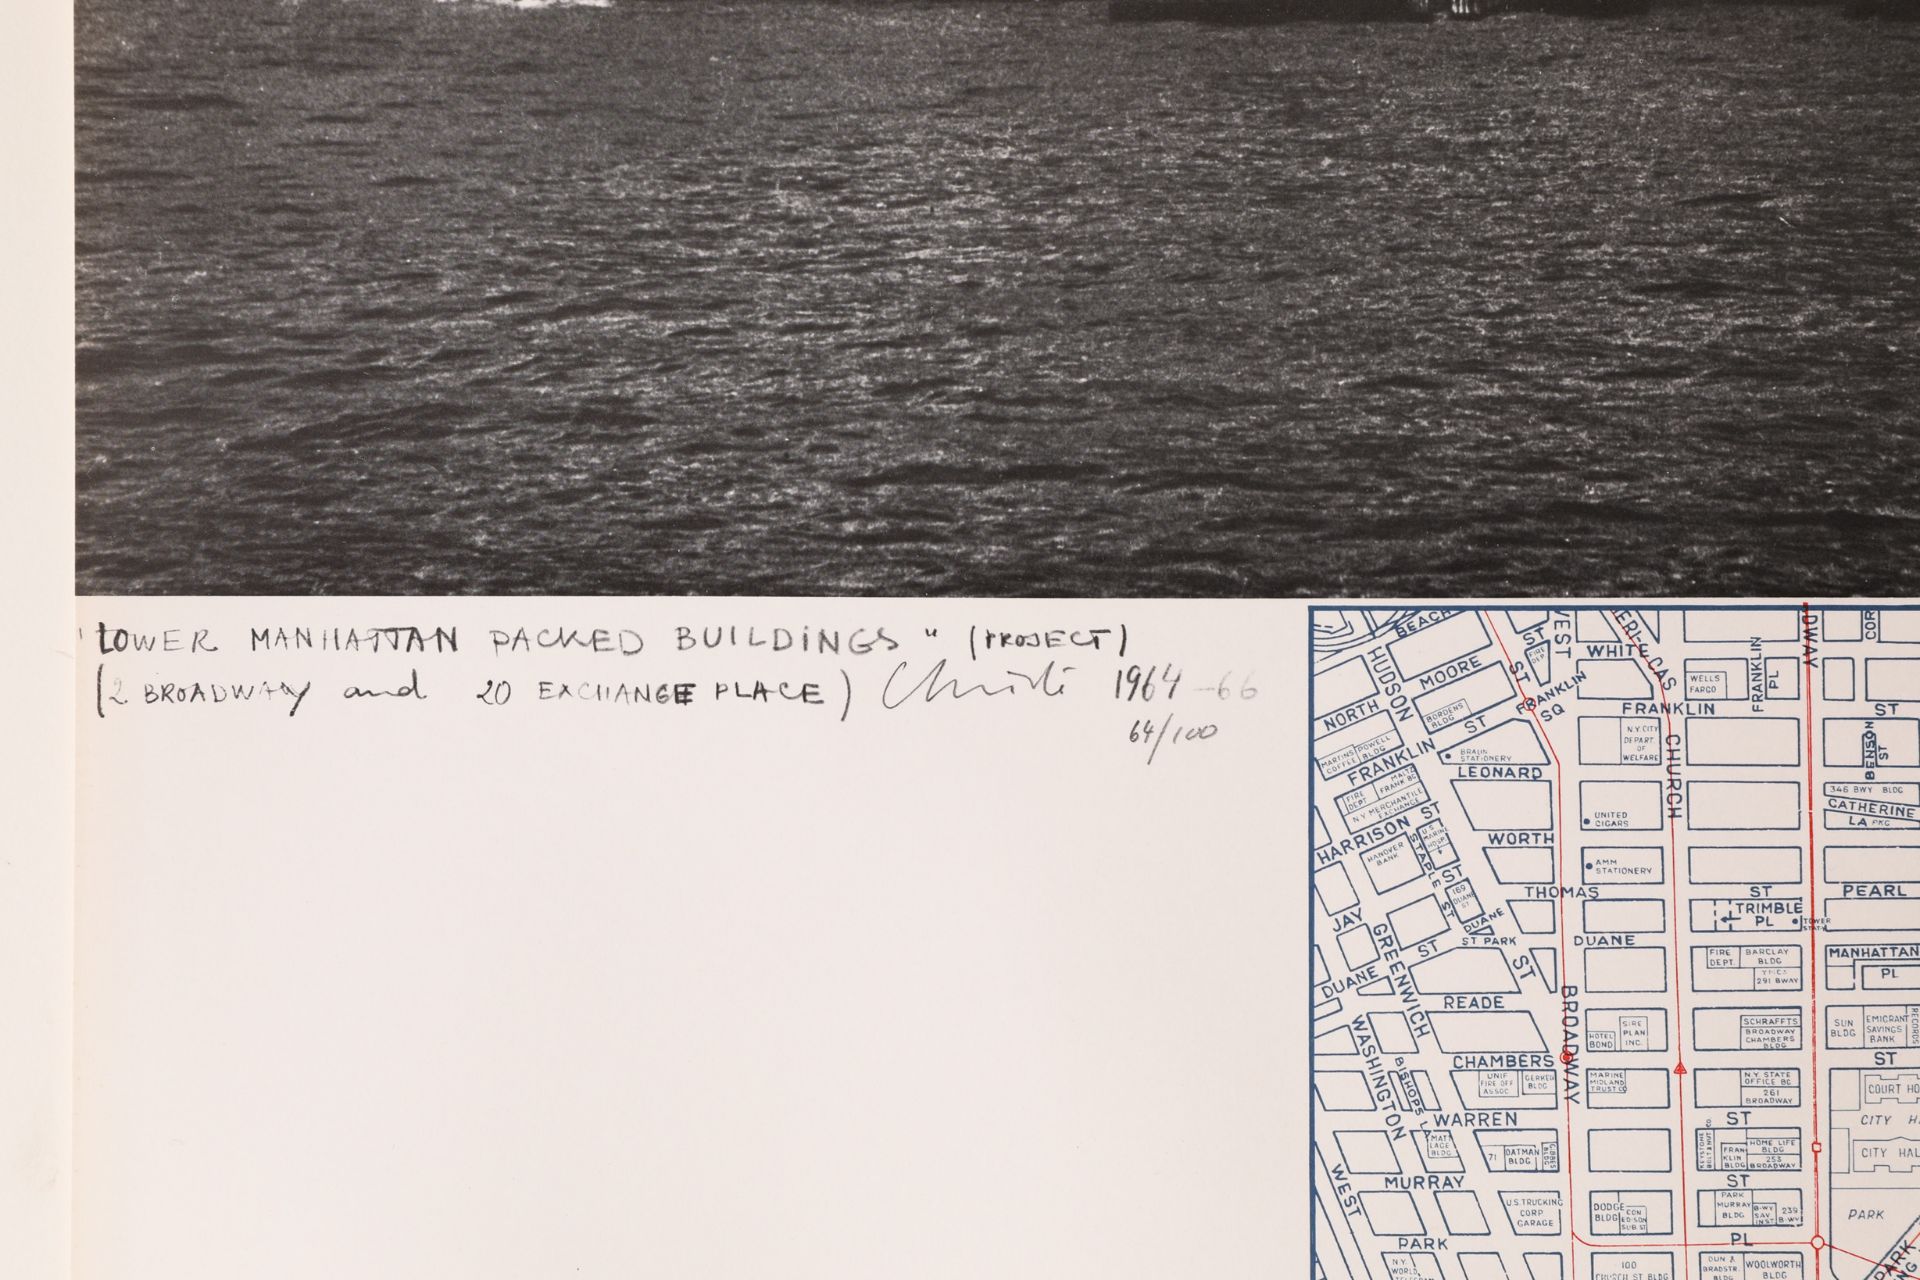 "LOWER MANHATTAN PACKED BUILDINGS" (PROJECT)
(2 BROADWAY and 20 EXCHANGE PLACE) Christo 1964-66
64/100
BEACH
ST
WEST
WHITE
FRANKLIN
PL
BROADWAY
HUDSON
MOORE
ST
FIRE DEP.
WELLS
FARGO
NORTH
BORDENS
BLDG
ST
FRANKLIN
SQ
FRANKLIN
ST
MARTINS
COFFEE
POWELL
BLDG
FRANKLIN
BRAUN
STATIONERY
N.Y. CITY
DEPART
OF
WELFARE
CHURCH
BENSON
ST
LEONARD
FIRE
DEPT
N.Y. MERCANTILE
EXCHANGE
346 BWY BLDG
CATHERINE
LA PKG
HARRISON ST
U.S.
MARINE
HOSP.
UNITED
CIGARS
WORTH
HANOVER
BANK
STAPLE ST
AMM
STATIONERY
ST
169
DUANE
ST
THOMAS
ST
PEARL
TRIMBLE
PL
TOWER
JAY
GREENWICH
DUANE
ST
ST PARK
DUANE
ST
FIRE
DEPT.
BARCLAY
BLDG
291 BWAY
MANHATTAN
PL
DUANE
READE
BROADWAY
WASHINGTON
HOTEL
BOND
SIRE
PLAN
INC.
SCHRAFFTS
BROADWAY
CHAMBERS
BLDG
SUN
BLDG
EMIGRANT
SAVINGS
BANK
RECORDS
CHAMBERS
ST
BISHOPS
UNIF
FIRE OFF
ASSOC
GERKEN
BLDG
MARINE
MIDLAND
TRUST CO
N.Y. STATE
OFFICE BG
261
BROADWAY
COURT HO
CITY H
WARREN
ST
MATT
LACE
BLDG
71
OATMAN
BLDG
GIBBES
BLDG
KEYSTONE
FRAN
KLIN
BLDG
HOME LIFE
BLDG
253
BROADWAY
CITY HAL
WEST
MURRAY
ST
U.S. TRUCKING
CORP
GARAGE
DODGE
BLDG
CON
EDISON
SUB. ST
PARK
MURRAY
BLDG
B-WY
SAV
INST
239
B-WY
PARK
PARK
PL
N.Y.
WORLD
100
CHURCH ST BLDG
DUN &
BRADSTR.
BLDG
WOOLWORTH
BLDG
PARK